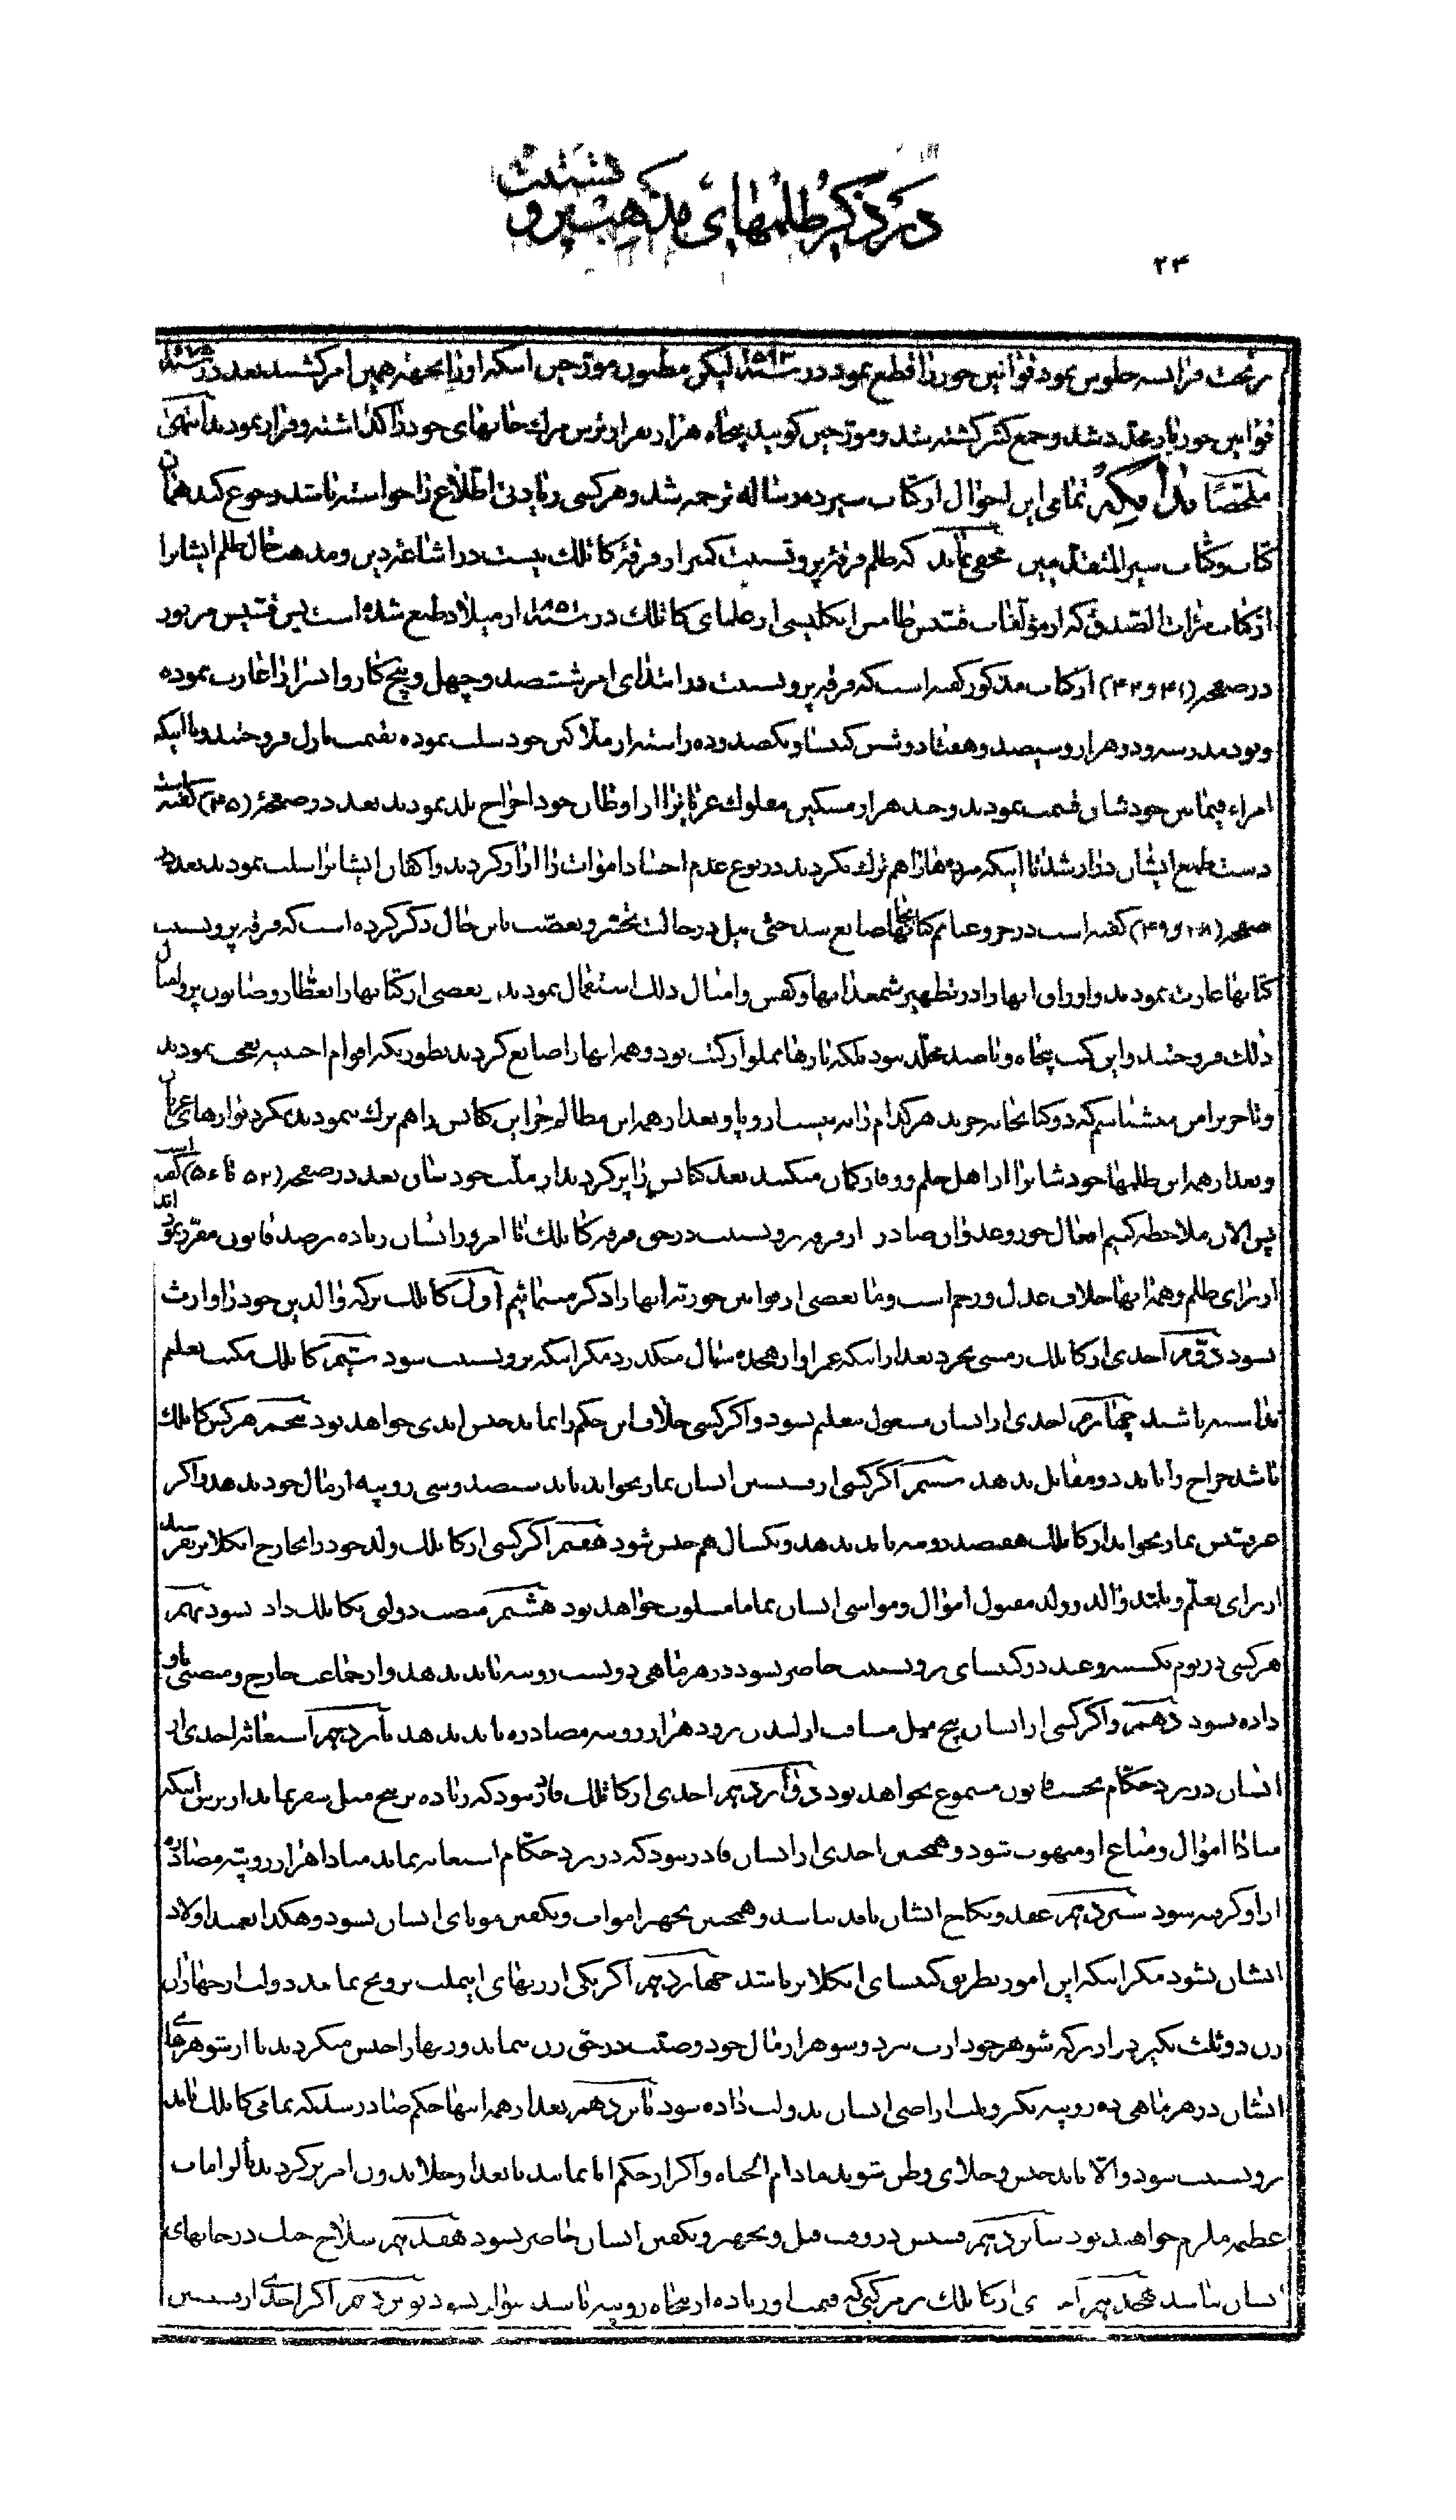 در ذکر ظلمهای مذهب پروتستنت
۲۳
بر تخت فرانسه جلوس نمود قوانین جور را قطع نمود در سنه ۱۵۹۳ لیکن مظنون مورّخین اینکه او را بجهة همین امر کشتند بعد در سنه
قوانین جور باز مجدّد شد و جمع کثیر کشته شد و مورّخین کویند پنجاه هزار نفر از ترس مرک خانهای خود را کذاشته و فرار نمودند انتهی
ملخّصاً بدانکه تمامی این احوال از کتاب سیزده رساله ترجمه شد و هر کسی زیادتی اطّلاع را خواسته باشد رجوع کند همان
کتاب و کتاب سیر المتقدّمین مخفی نماند که ظلم فرقهٔ پروتستنت کمتر از فرقهٔ کاتلک نیست در اشاعهٔ دین و مذهب حال ظلم ایشانرا
از کتاب مرآت الصّدق که از مؤلّفات قسّیس طامس انکلیسی از علمای کاتلک در سنه ۱۸۵۱ از میلاد طبع شده است پس قسّیس مزبور
در صفحهٔ (۴۱ و ۴۲) از کتاب مذکور کفته است که فرقهٔ پروتستنت در ابتدای امر ششصد و چهل و پنج کاروانسرا را غارت نموده
و نود مدرسه و دو هزار و سیصد و هفتاد و شش کنیسا و یکصد و ده راستهٔ از ملّاکش خود سلب نموده بقیمت نازل فروختند و یا اینکه
امراء فیمابین خودشان قسمت نمودند و چند هزار مسکین مفلوک عریانرا از اوطان خود اخراج بلد نمودند بعد در صفحهٔ (۴۵) کفته است
دست طمع ایشان دراز شد تا اینکه مرده‌ها را هم ترک نکردند در نوع عدم اجساد اموات را آزار کردند و اکفان ایشانرا سلب نمودند بعد در
صفحهٔ (۴۸ و ۴۹) کفته است در جزو غنایم کتابخانها ضایع شد حتّی بیل در حالت تحسّر و تعصّب باین حال ذکر کرده است که فرقهٔ پروتستنت
کتابها غارت نمودند و اوراق آنها را در تطهیر شمعدانها و کفش و امثال ذلک استعمال نمودند بعضی از کتابها را بعطّار و صابون پز و امثال
ذلک فروختند و این کتب پنجاه و یا صد مجلّد نبود بلکه بارها مملوّ از کتب بود و همهٔ آنها را ضایع کردند بطوریکه اقوام اجنبیه تعجّب نمودند
و تاجریرا من میشناسم که دو کتابخانه خرید هر کدام را به بیست روپا و بعد از همهٔ این مظالم خزاین کنائس را هم ترک ننمودند مکر دیوارهای عریان
و بعد از همهٔ این ظلمها خودشانرا از اهل حلم و وقار کمان میکنند بعد کنائس را پر کردند از ملّت خودشان بعد در صفحهٔ (۵۲ تا ۵۶) کفته است
پس الان ملاحظه کنیم افعال جور و عدوان صادر از فرقهٔ پروتستنت در حقّ فرقهٔ کاتلک تا امروز ایشان زیاده بر صد قانون مقرّر نموده‌اند
از برای ظلم و همهٔ اینها خلاف عدل و رحم است و ما بعضی از قوانین جوریهٔ آنها را ذکر مینمائیم اوّل کاتلک ترکهٔ والدین خود را وارث
نشود دوّم احدی از کاتلک زمین نخرد بعد از آنکه عمر او از هجده سال میکذرد مکر اینکه پروتستنت شود سیّم کاتلک مکتب تعلیم
نداشته باشند چهارم احدی از ایشان مشغول تعلیم نشود و اکر کسی خلاف این حکم را نماید حبس ابدی خواهد بود پنجم هر کس کاتلک
باشد خراج را باید دو مقابل بدهد ششم اکر کسی از قسّیسین ایشان نماز بخواند باید سیصد و سی روپیه از مال خود بدهد و اکر
غیر قسّیس نماز بخواند از کاتلک هفتصد روپیه باید بدهد و یکسال هم حبس شود هفتم اکر کسی از کاتلک ولد خود را بخارج انکلاتره بفرستد
از برای تعلّم و تلمّذ والد و ولد مقتول اموال و مواشی ایشان تماما مسلوب خواهد بود هشتم منصب دولتی بکاتلک داده نشود نهم
هر کسی در یوم یکشنبه و عید در کنیسای پروتستنت حاضر نشود در هر ماهی دویست روپیه باید بدهد و از جماعت خارج و منصبی باو
داده نشود دهم و اکر کسی از ایشان پنج میل مسافت از لندن برود هزار روپیه مصادره باید بدهد یازدهم استغاثهٔ احدی از
ایشان در نزد حکّام بحسب قانون مسموع نخواهد بود دوازدهم احدی از کاتلک قادر نشود که زیاده بر پنج میل سفر نماید از ترس اینکه
مبادا اموال و متاع او منهوب شود و همچنین احدی از ایشان قادر نشود که در نزد حکّام استغاثه نماید مبادا هزار روپیه مصادره
از او کرفته شود سیزدهم عقد و نکاح ایشان نافذ نباشد و همچنین تجهیز اموات و تکفین موتای ایشان نشود و هکذا تعمید اولاد
ایشان نشود مکر اینکه این امور بطریق کنیسای انکلاتره باشد چهاردهم اکر یکی از زنهای این ملّت تزویج نماید دولت از جهاز آن
زن دو ثلث بکیرد و از ترکهٔ شوهر خود ارث نبرد و شوهر از مال خود وصیّت در حقّ زن ننماید و زنها را حبس میکردند تا از شوهرهای
ایشان در هر ماهی ده روپیه بکیرد و یا ثلث اراضی ایشان بدولت داده شود پانزدهم بعد از همهٔ اینها حکم صادر شد که تمامی کاتلک باید
پروتستنت شود و الّا باید حبس و جلای وطن شوند مادام الحیاة و اکر از حکم ابا نمایند یا بعد از جلا بدون امر برکردند بالزامات
عظیمه ملزم خواهند بود شانزدهم قسّیس در وقت قتل و تجهیز و تکفین ایشان حاضر نشود هفدهم سلاح جنک در خانهای
ایشان نباشد هجدهم احدی از کاتلک بر مرکبی که قیمت او زیاده از پنجاه روپیه باشد سوار نشود نوزدهم اکر احدی از قسّیسین